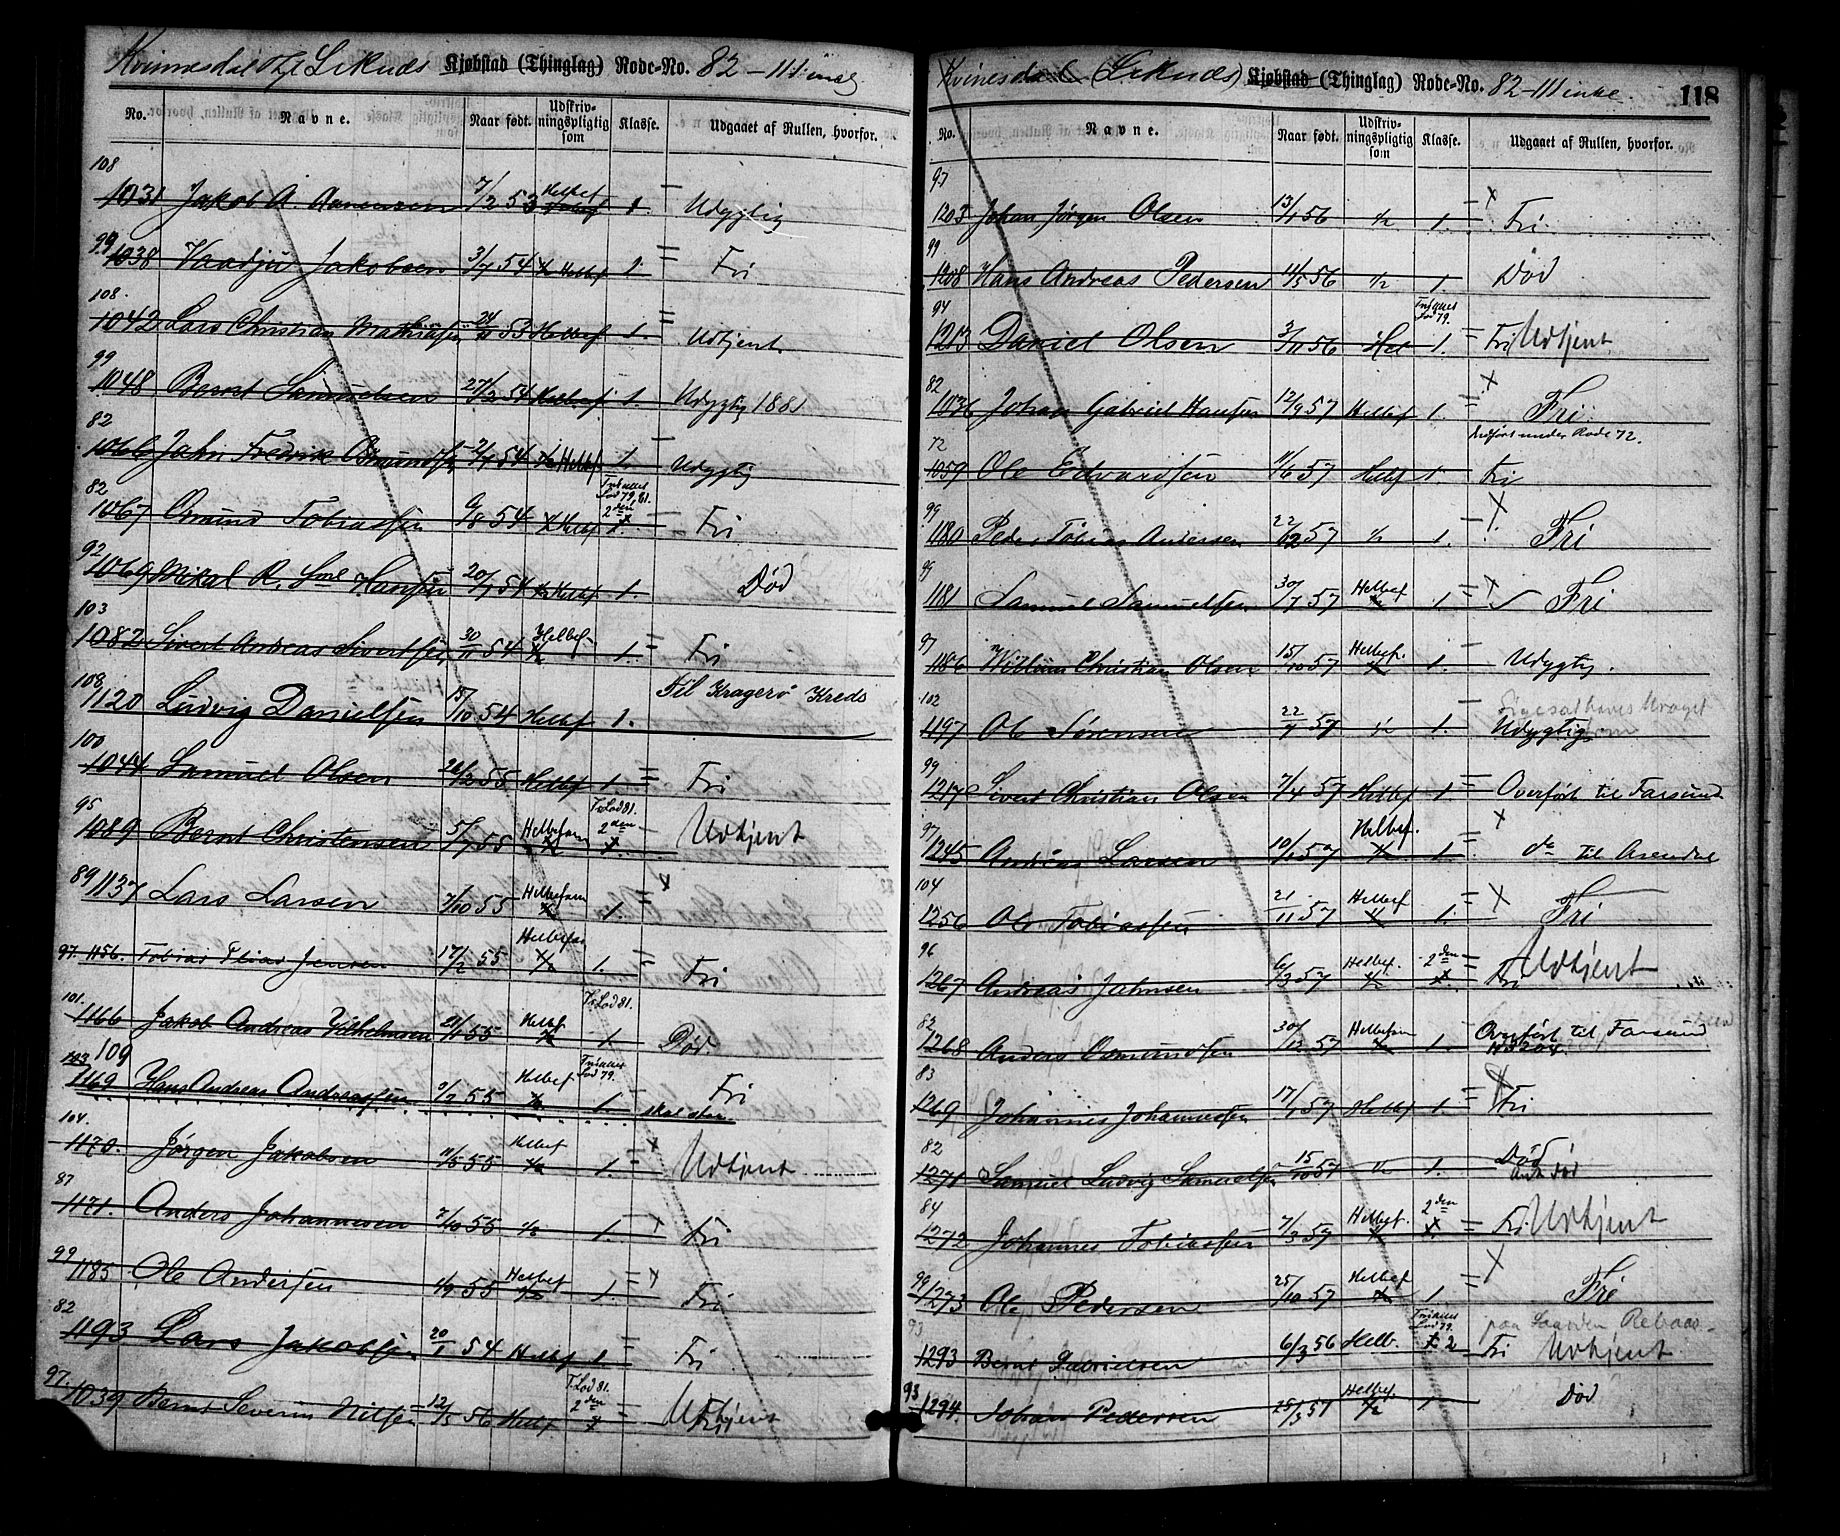 Kvinnesdal og Lyknds Kjøbstad (Thinglag) Rode-No. 82-111 inkl
No. Navne. Naar født. Udskrivningspligtig som Klasse. Udgaaet af Rullen, hvorfor.
108
1031 Jakob A. Aanensen 7/2 53 Helbef 1. Udygtig
99
1038 Jakobsen 3/7 54 1/2 Helbf 1. Fri
108.
1042 Lars Christian Mathiasen 53 Helbef 1. Udtjent.
99
1048 Bernt Samuelsen 27/2 54 Helbef 1. Udygtig 1881
82
1066 Jahn Fredrik Osmundsen 54 1/2 Helbef 1. Udygtig
82
1067 Osmund Tobiassen 6/8 54 1/2 Helbf 2den Fri
Lod 79, 81.
92
1069 Mikal R. Hansen 20/7 54 1/2 Helbf 1. Død
103
1082 Sivert Andreas Sivertsen 30/11 54 Helbef 1/2 1. Fri
108
1120 Ludvig Danielsen 15/10 54 Helbef 1. Til Kragerø Kreds
100
1044 Samuel Olsen 26/2 55 Helbef 1. Fri
95
1089 Bernt Christensen 5/7 55 Helbefaren 2den Udtjent
Lod 81.
89
1137 Lars Larsen 7/10 55 Helbefaren 1. x
97. 1156. Tobias Jensen 17/2 55 Helbefar 1/2 1. Fri
101.
1166 Jakob Andreas Vilhelmsen 55 Helbf 1 Død.
Lod 81.
103 109
1169 Hans Andreas Andreassen 9/2 55 Helbef 1/2 1. Fri
Lod 79.
skal staa
104.
1170. Jørgen Jakobsen 11/5 55 Helbef 1/2 1. x Udtjent
87
1171. Anders Johannesen 7/10 55 1/2 1. Fri
99
1185 Ole Andersen 4/9 55 Helbef 1/2 1. Fri
82
1193 Lars Jakobsen 20/1 54 Helbf 1. Fri
97.
1039 Bernt Severin Nilsen 12/3 56 Helbf 2den Udtjent Fri
Lod 81.
Kvinesdal (Lyknds) Kjøbstad (Thinglag) Rode-No. 82-111 inkl. 118
No. Navne. Naar født. Udskrivningspligtig som Klasse. Udgaaet af Rullen, hvorfor.
97
1205 Johan Jørgen Olsen 13/1 56 1/2 1. x Fri
99
1208 Hans Andreas Pedersen 14/5 56 1/2 1. Død
94
1213 Daniel Olsen 3/11 56 Hel 1. Fri Udtjent
Lod 79.
82
1036 Johan Gabriel Hansen 12/9 57 Helbef 1. x Fri
Indført under Rode 72.
72
1059 Ole Edvardsen 11/6 57 Helbf 1 Fri
99
1180 Peder Tobias Andersen 22/12 57 1/2 1. x Fri
99
1181 Samuel Samuelsen 30/7 57 Helbef 1. x Fri
97
1186 William Christian Olsen 15/10 57 Helbef. 1. Udygtig.
102
1197 Ole Sørensen 22/7 57 1/2 1. Udygtig
99
1217 Sivert Christian Olsen 7/4 57 Helbef 1. Overført til Farsund
97
1245 Andreas Larsen 10/1 57 Helbef. 1. x do til Arendal
104
1256 Ole Tobiassen 21/11 57 Helbef 1. x Fri
96
1267 Andreas Jahnsen 6/3 57 Helbef. 2den Fri Udtjent
82
1268 Anders Osmundsen 30/12 57 Helbefaren 1. Overført til Farsund
83
1269 Johannes Johannessen 17/1 57 Helbf 1. Fri
82
1271 Samuel Ludvig Samuelsen 15/10 57 1/2 1. Død
84
1272 Johannes Tobiassen 7/3 57 Helbef. 2den Fri Udtjent
99
1273 Ole Pedersen 25/10 57 Helbef 1 x Fri
93
1293 Bernt Gabrielsen 6/3 56 Helb. 2 Fri Udtjent
Lod 79.
93
1294. Johan Pedersen 25/3 57 Helbef. 1/2 1 Død